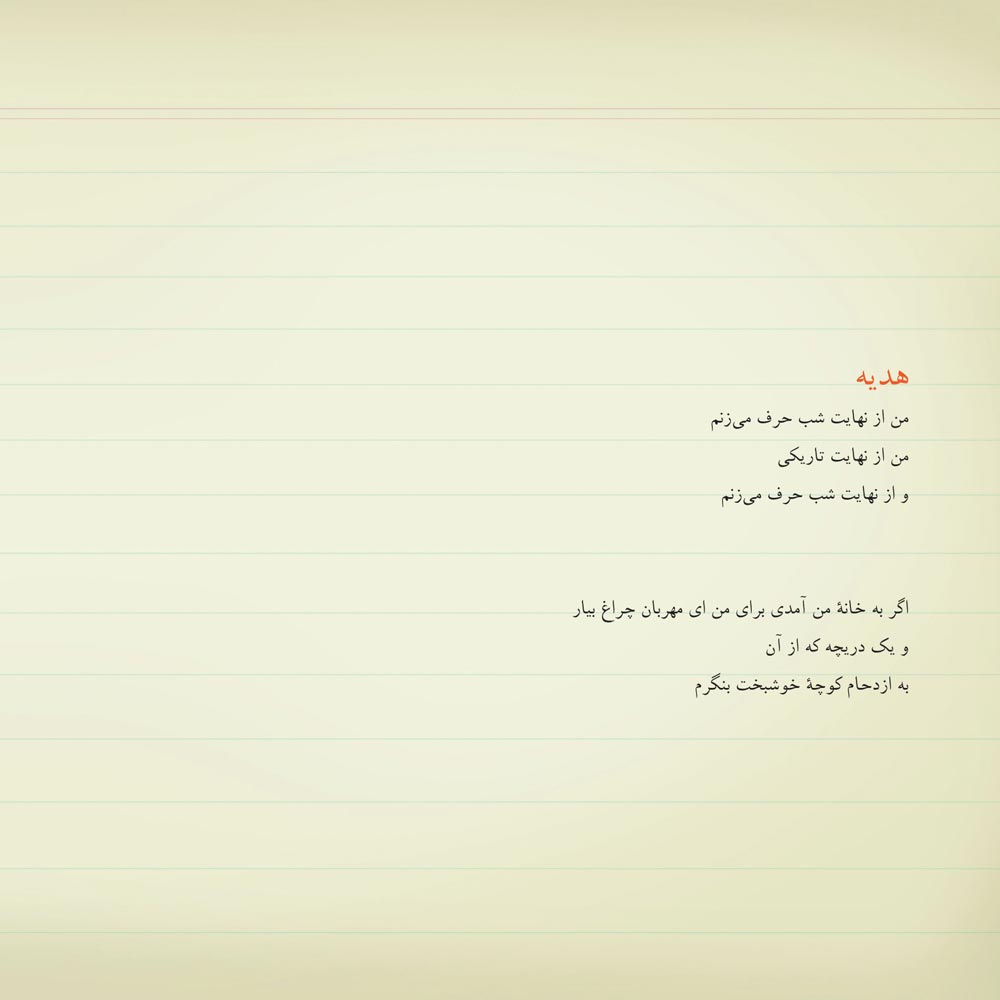 هدیه
من از نهایت شب حرف می‌زنم
من از نهایت تاریکی
و از نهایت شب حرف می‌زنم
اگر به خانهٔ من آمدی برای من ای مهربان چراغ بیار
و یک دریچه که از آن
به ازدحام کوچهٔ خوشبخت بنگرم